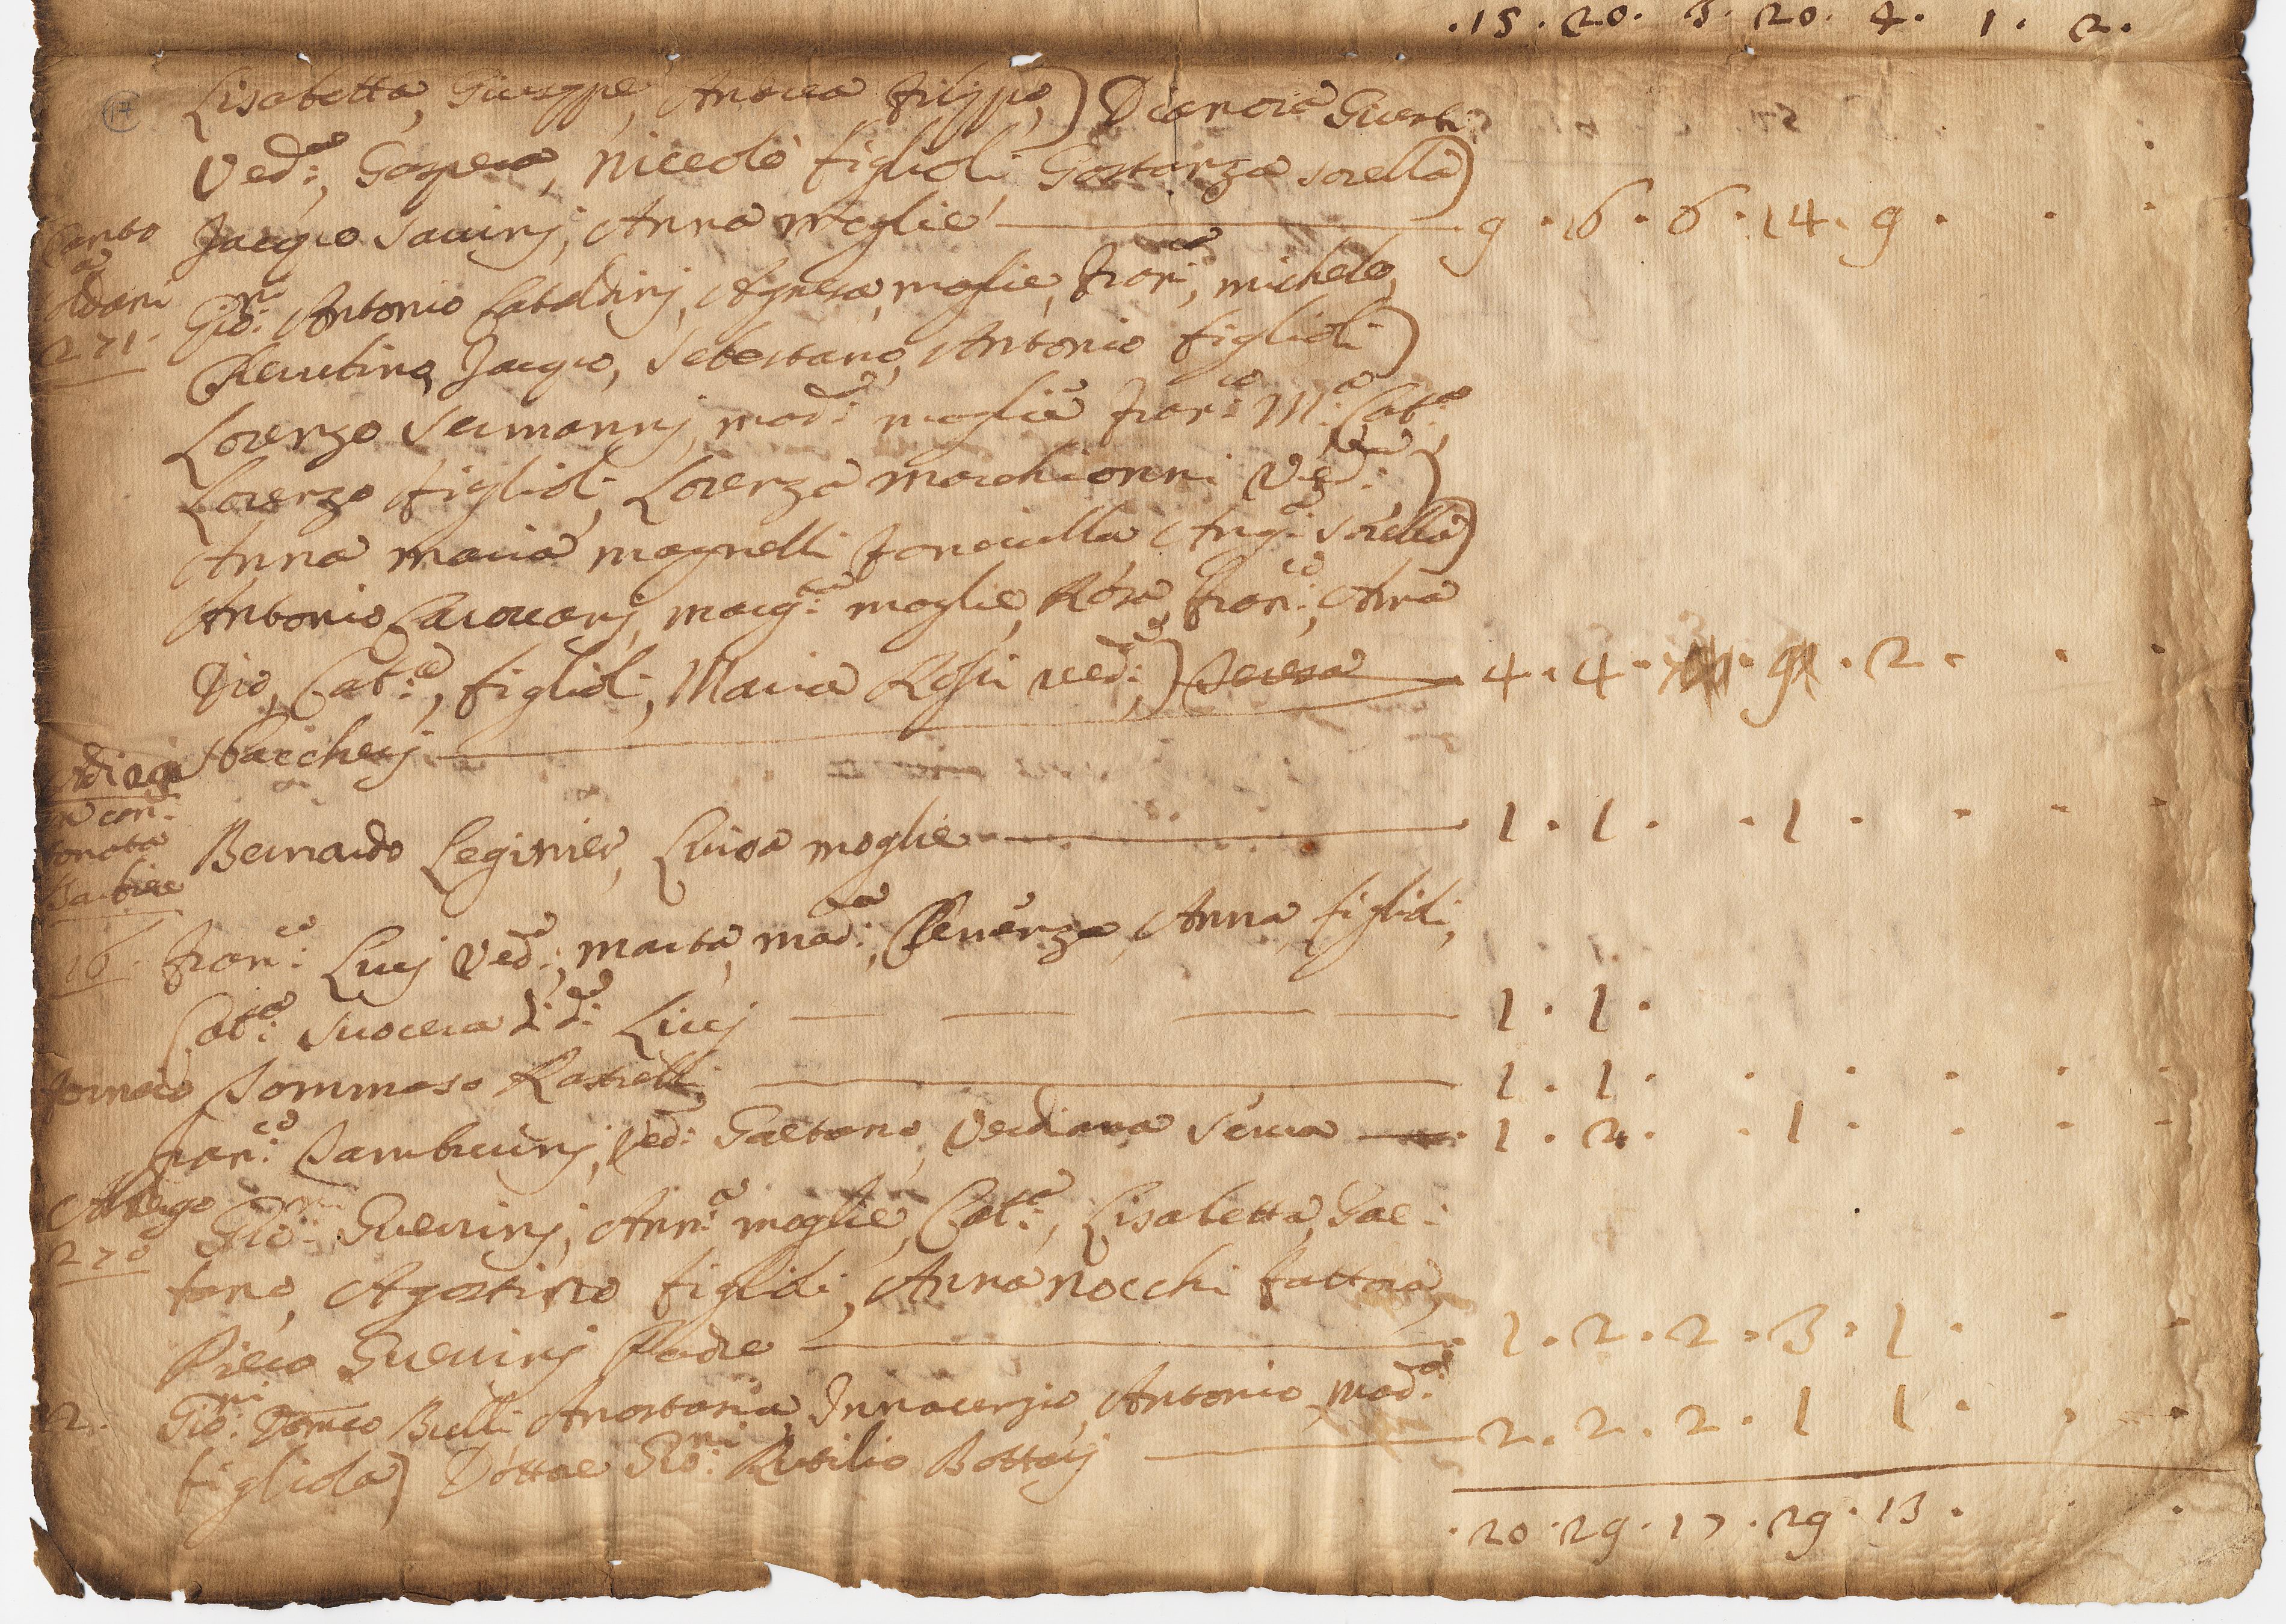 .15 . 20. 3. 20. 4. 1. 2.
17
Lisabetta, Giuseppe, Andrea Filippo,) Dianora Guerti
Ved:a, Gaspero, Niccolò figlioli Gostanza sorella)
Canto Jacopo Savinj, Anna moglie 9 . 16 . 6 . 14. 9 .
a
Aldani Gio:ni Antonio Cataldinj, Agnesa moglie, Fran:co, Michele,
271. Cherubino, Jacopo, Sebastiano, Antonio figlioli)
Lorenzo Sermannj, mad:a moglie Fran:co M:a Cat:a
Lorenzo figlioli, Lorenza Marchionni Ved:a)
Anna Maria Magnelli fanciulla Ang:a sorella)
Antonio Cavorcanj, Marg:ta moglie, Rosa, Fran:co, Anna
Pio, Cat:a, figlioli, Maria Rossi ved:a) Teresa 4 . 4 . 9 . 2 .
Barcherj
Bernardo Leginier, Luisa moglie 1 . 1 . . 1 .
Barbiere
16. Fran:co Lucj Ved:o, Marta, mad:a, Chenenza, Anna figlioli,
Cat:a suocera d:d:o Lucj 1 . 1 .
Fornaio Tommaso Rastrelli 1 . 1 .
Fran:co Tamburinj, Ved:o Gaetano, Verdiana Serva 1 . 2 . . 1 .
Albergo Gio:ni Guerrinj, Ann:a moglie, Cat:a, Lisabetta, Gae:
270 tano, Agostino figlioli, Anna Nocchi fattora,
Piero Guerrinj Padre 1 . 2 . 2 . 3 . 1 .
2. Gio:ni Dom:co Bulli, Anastasia, Innocenzio, Antonio mad:a
figliola) Dottore Gio:ni Rutilio Bottarj 2 . 2 . 2 . 1 1 .
. 20 . 29 . 17 . 29 . 13 .